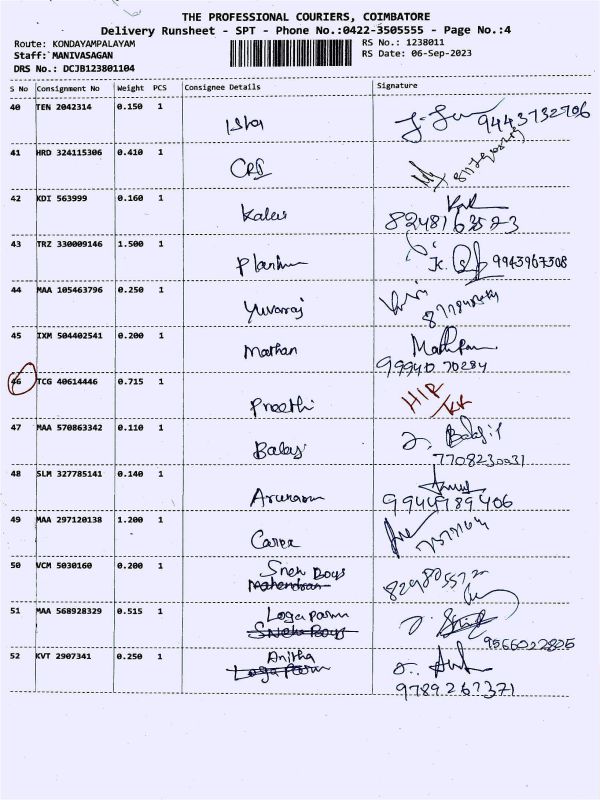 THE PROFESSIONAL COURIERS, COIMBATORE
Delivery Runsheet - SPT - Phone No.:0422-3505555 - Page No.:4
Route: KONDAYAMPALAYAM
Staff: MANIVASAGAN
DRS No.: DCJB123801104
RS No.: 1238011
RS Date: 06-Sep-2023
S No Consignment No Weight PCS Consignee Details Signature
40 TEN 2042314 0.150 1
9443732706
41 HRD 324115306 0.410 1
42 KDI 563999 0.160 1
8248163523
43 TRZ 330009146 1.500 1
9943967308
44 MAA 105463796 0.250 1 Yuvaraj
45 IXM 504402541 0.200 1 Mathan
9994070284
46 TCG 40614446 0.715 1 Preethi
47 MAA 570863342 0.110 1 Balaj
7708230031
48 SLM 327785141 0.140 1
9944789406
49 MAA 297120138 1.200 1
50 VCM 5030160 0.200 1 Sneh Boys
Mahendran
51 MAA 568928329 0.515 1
Sneh Boys
9566022805
52 KVT 2907341 0.250 1 Anitha
9789267371